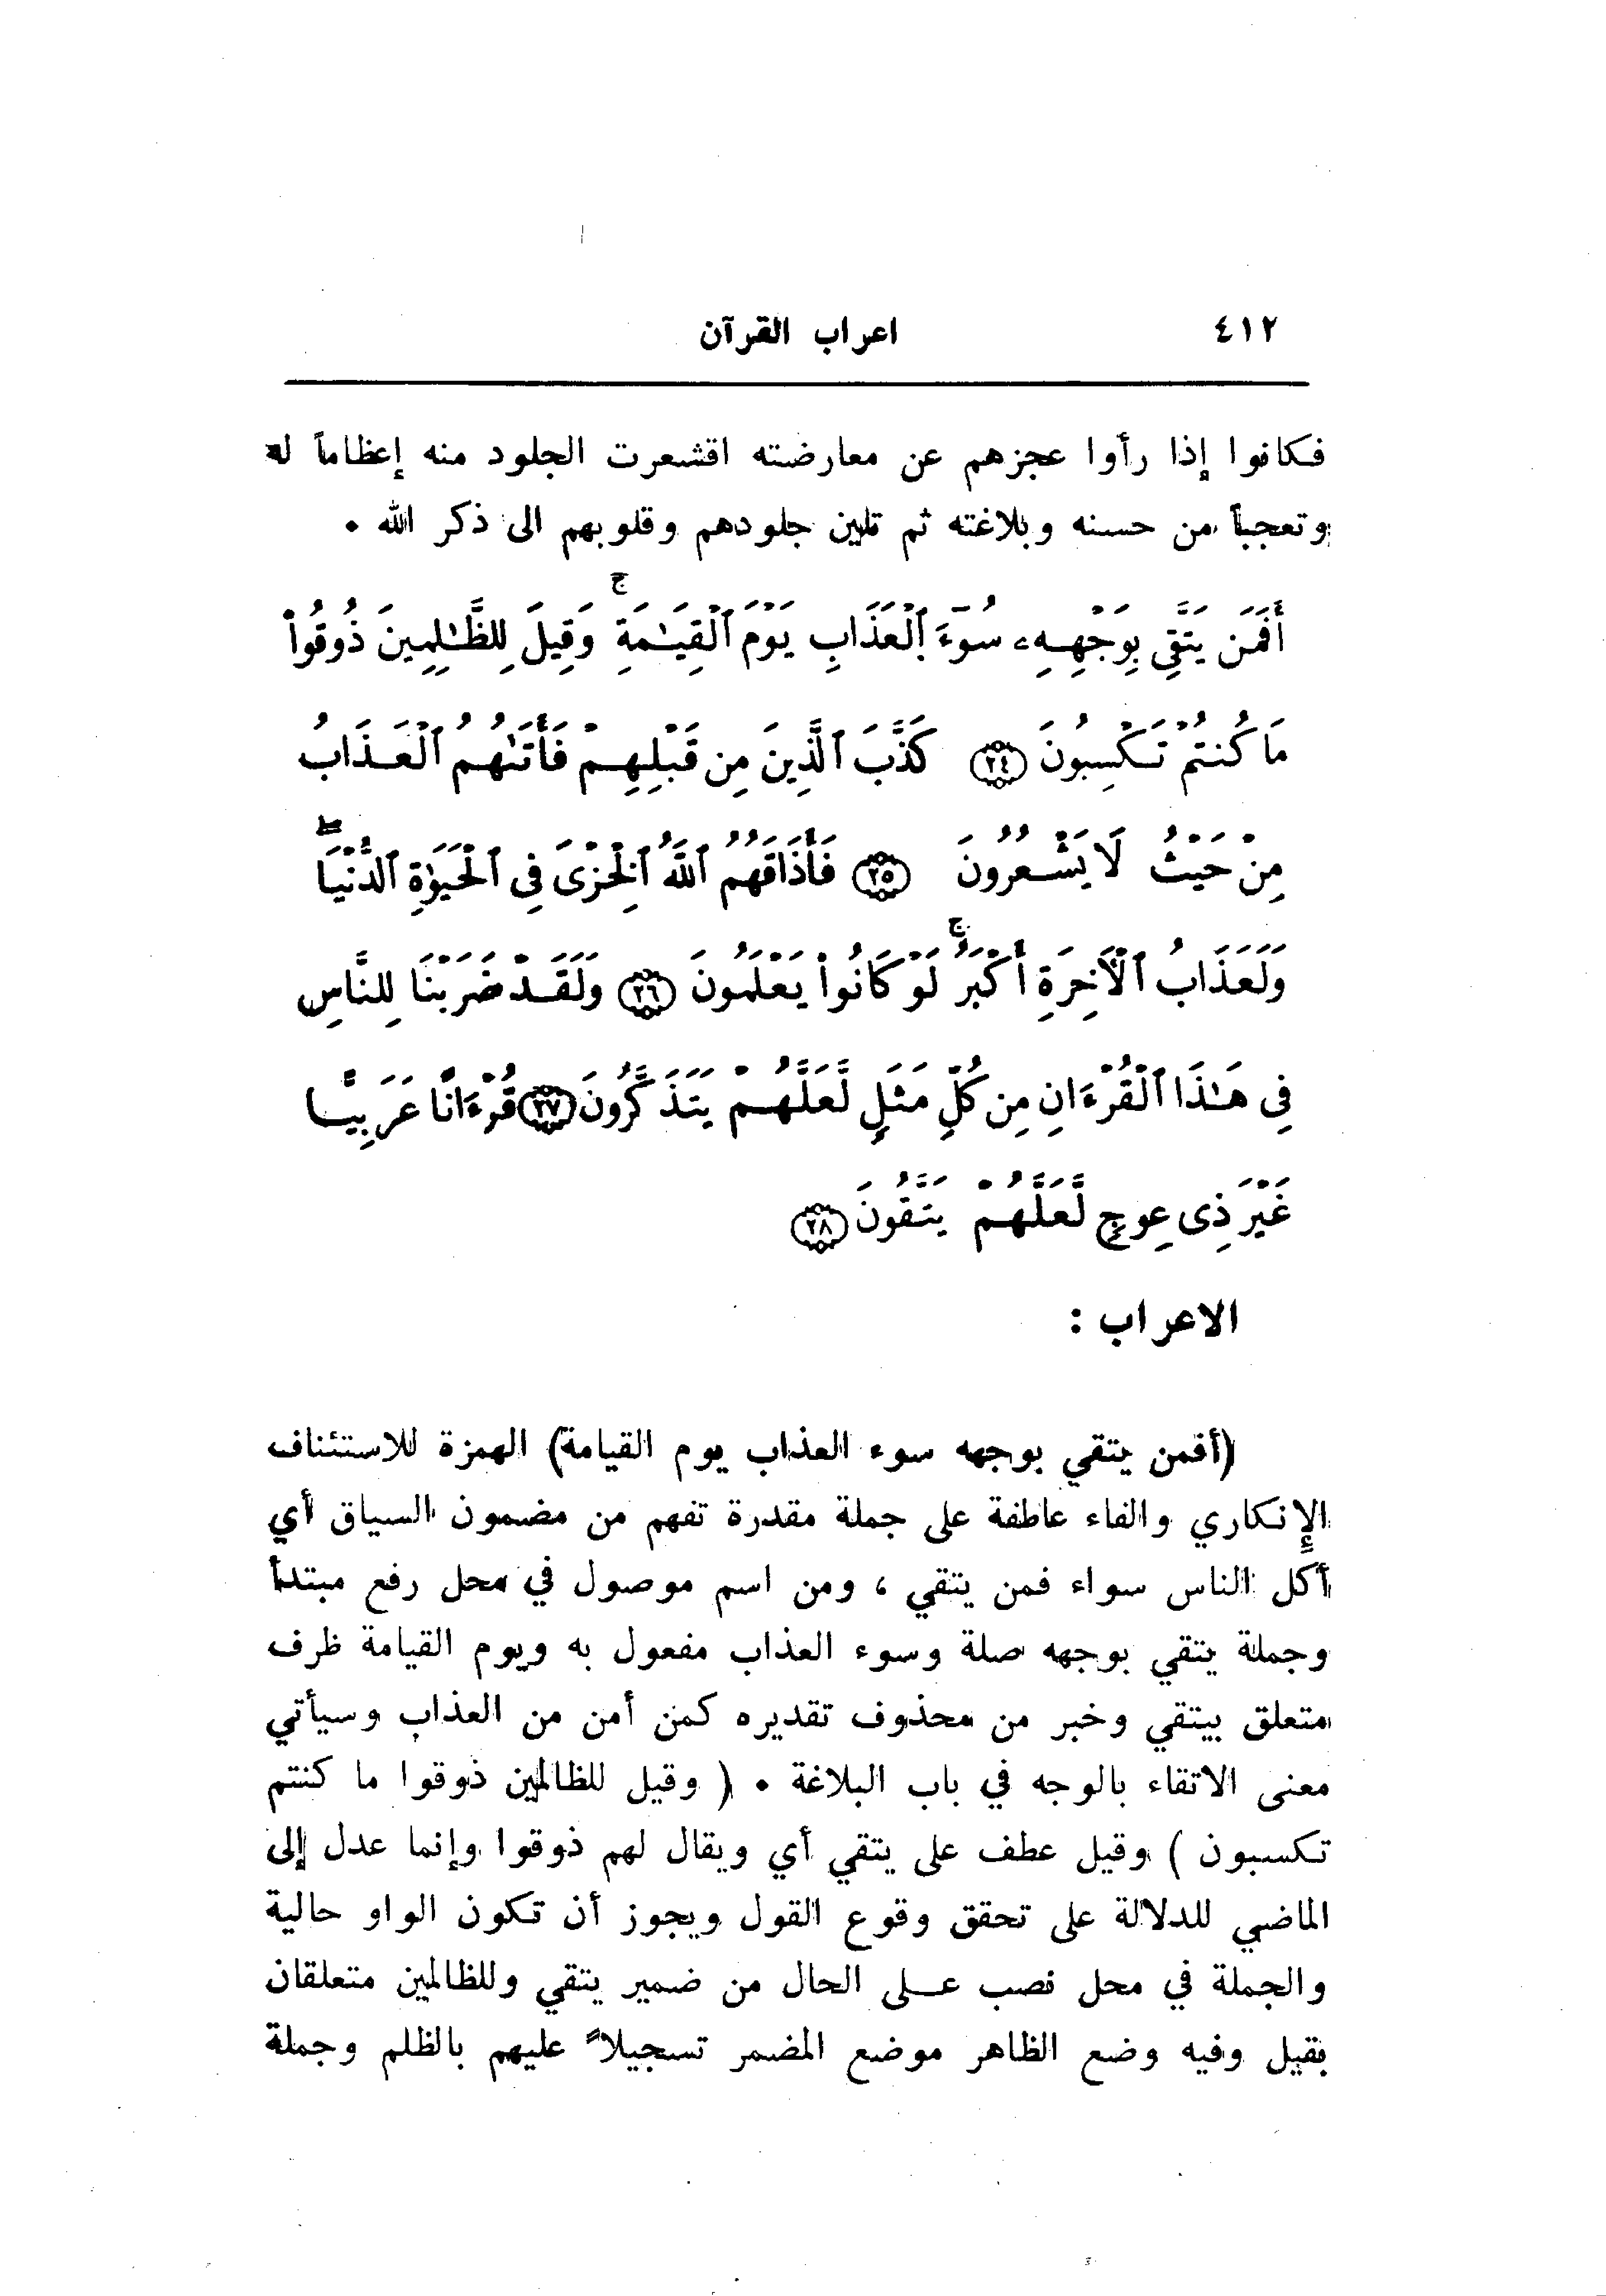 ٤١٢ اعراب القرآن
فكانوا إذا رأوا عجزهم عن معارضته اقشعرت الجلود منه إعظاماً له
وتعجباً من حسنه وبلاغته ثم تلين جلودهم وقلوبهم الى ذكر الله ٠
أَفَمَن يَتَّقِي بِوَجْهِهِۦ سُوٓءَ ٱلْعَذَابِ يَوْمَ ٱلْقِيَـٰمَةِ ۚ وَقِيلَ لِلظَّـٰلِمِينَ ذُوقُوا۟
مَا كُنتُمْ تَكْسِبُونَ ﴿٢٤﴾ كَذَّبَ ٱلَّذِينَ مِن قَبْلِهِمْ فَأَتَىٰهُمُ ٱلْعَذَابُ
مِنْ حَيْثُ لَا يَشْعُرُونَ ﴿٢٥﴾ فَأَذَاقَهُمُ ٱللَّهُ ٱلْخِزْىَ فِى ٱلْحَيَوٰةِ ٱلدُّنْيَا ۖ
وَلَعَذَابُ ٱلْـَٔاخِرَةِ أَكْبَرُ ۚ لَوْ كَانُوا۟ يَعْلَمُونَ ﴿٢٦﴾ وَلَقَدْ ضَرَبْنَا لِلنَّاسِ
فِى هَـٰذَا ٱلْقُرْءَانِ مِن كُلِّ مَثَلٍ لَّعَلَّهُمْ يَتَذَكَّرُونَ ﴿٢٧﴾ قُرْءَانًا عَرَبِيًّا
غَيْرَ ذِى عِوَجٍ لَّعَلَّهُمْ يَتَّقُونَ ﴿٢٨﴾
الاعراب :
(أفمن يتقي بوجهه سوء العذاب يوم القيامة) الهمزة للاستئناف
الإنكاري والفاء عاطفة على جملة مقدرة تفهم من مضمون السياق أي
أكل الناس سواء فمن يتقي ، ومن اسم موصول في محل رفع مبتدأ
وجملة يتقي بوجهه صلة وسوء العذاب مفعول به ويوم القيامة ظرف
متعلق بيتقي وخبر من محذوف تقديره كمن أمن من العذاب وسيأتي
معنى الاتقاء بالوجه في باب البلاغة ٠ ( وقيل للظالمين ذوقوا ما كنتم
تكسبون ) وقيل عطف على يتقي أي ويقال لهم ذوقوا وإنما عدل إلى
الماضي للدلالة على تحقق وقوع القول ويجوز أن تكون الواو حالية
والجملة في محل نصب عـلى الحال من ضمير يتقي وللظالمين متعلقان
بقيل وفيه وضع الظاهر موضع المضمر تسجيلاً عليهم بالظلم وجملة